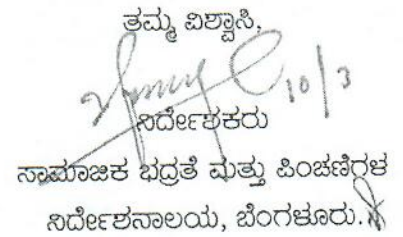 ತಮ್ಮ ವಿಶ್ವಾಸಿ,
10/3
ನಿರ್ದೇಶಕರು
ಸಾಮಾಜಿಕ ಭದ್ರತೆ ಮತ್ತು ಪಿಂಚಣಿಗಳ
ನಿರ್ದೇಶನಾಲಯ, ಬೆಂಗಳೂರು.